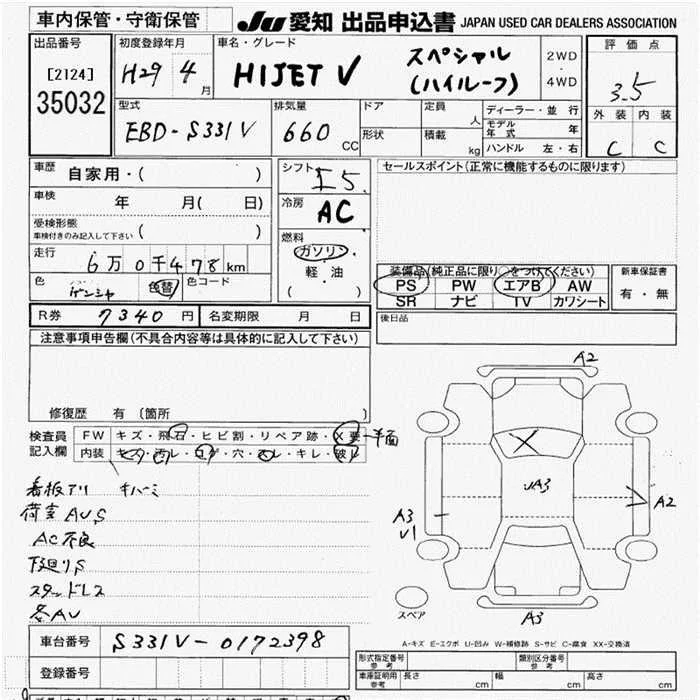 車内保管・守衛保管
JU 愛知 出品申込書 JAPAN USED CAR DEALERS ASSOCIATION
出品番号
[2124]
35032
初度登録年月
H29 4月
車名・グレード
HIJET V
スペシャル
(ハイルーフ)
2WD
・
4WD
評価点
3.5
外装 内装
C C
型式
EBD-S331V
排気量
660 CC
ドア
形状
定員 人
積載 kg
ディーラー・並行
モデル年式 年
ハンドル 左・右
車歴 自家用・( )
車検 年 月( 日)
受検形態
車検付きのみ記入して下さい ( )
走行 6万0千478km
色 色替 色コード
シフト I5
冷房 AC
燃料
ガソリン
軽・油
( )
セールスポイント(正常に機能するものに限ります)
装備品(純正品に限り○をつけてください)
PS PW エアB AW
SR ナビ TV カワシート
新車保証書
有・無
後日品
R券 7340円 名変期限 月 日
注意事項申告欄(不具合内容等は具体的に記入して下さい)
修復歴 有 〔箇所 〕
検査員
記入欄
FW キズ・飛石・ヒビ割・リペア跡・X要
内装 キズ・汚レ・コゲ・穴・スレ・キレ・破レ
看板アリ キハーミ
荷室AUS
AC不良
下廻りS
スタッドレス
各AU
A2
X
UA3
A3
V1
A2
スペア
A3
A-キズ E-エクボ U-凹み W-補修跡 S-サビ C-腐食 XX-交換済
車台番号 S331V-0172398
登録番号
形式指定番号
参考
類別区分番号
参考
車庫証明用
参考
長さ cm 幅 cm 高さ cm